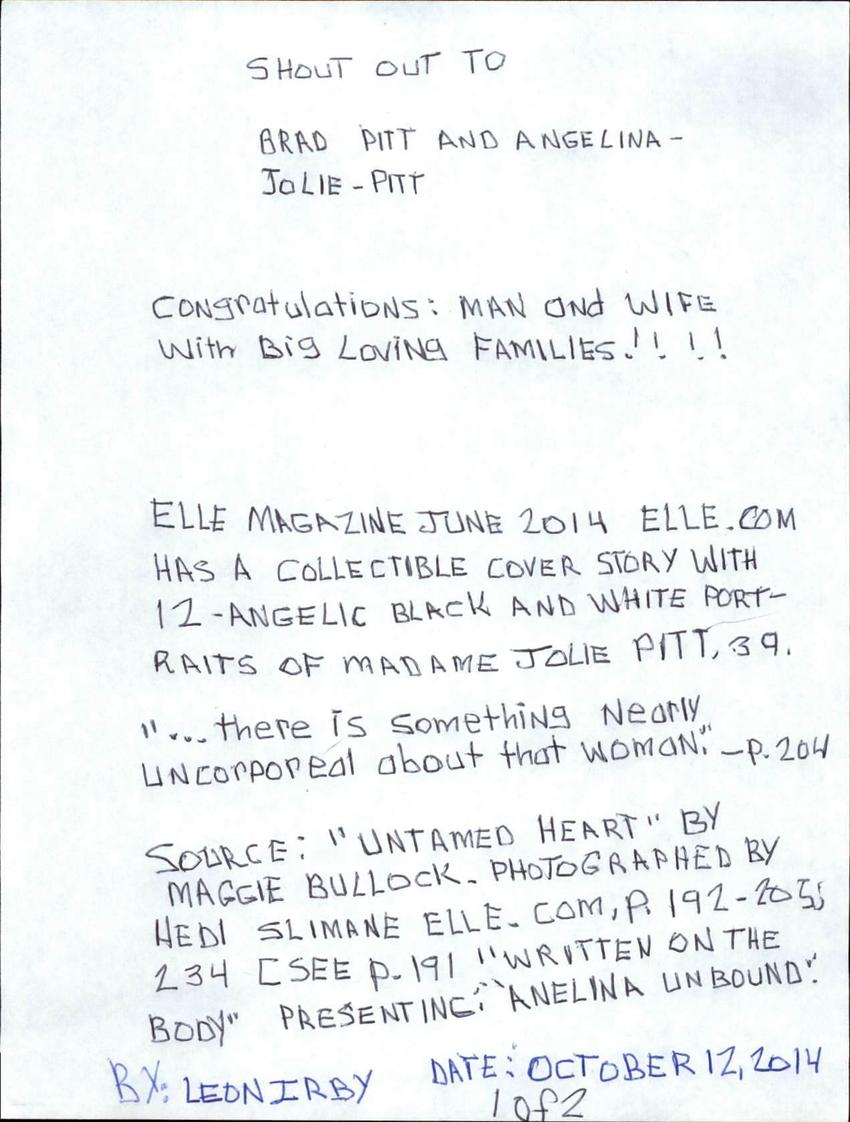 SHOUT OUT TO
BRAD PITT AND ANGELINA-
JOLIE-PITT
CONgratulations: MAN ANd WIFE
With Big LoviNg FAMILIES!! ! !
ELLE MAGAZINE JUNE 2014 ELLE.COM
HAS A COLLECTIBLE COVER STORY WITH
12-ANGELIC BLACK AND WHITE PORT-
RAITS OF MADAME JOLIE PITT, 39.
"... there is somethiNg Nearly
UNcorporeal about that womaN." -p. 204
SOURCE: "UNTAMED HEART" BY
MAGGIE BULLOCK. PHOTOGRAPHED BY
HEDI SLIMANE ELLE. COM, p. 192-205;
234 [SEE p. 191 "WRITTEN ON THE
BODY" PRESENTING: "ANELINA UNBOUND".
BY: LEON IRBY DATE: OCTOBER 12, 2014
1 of 2